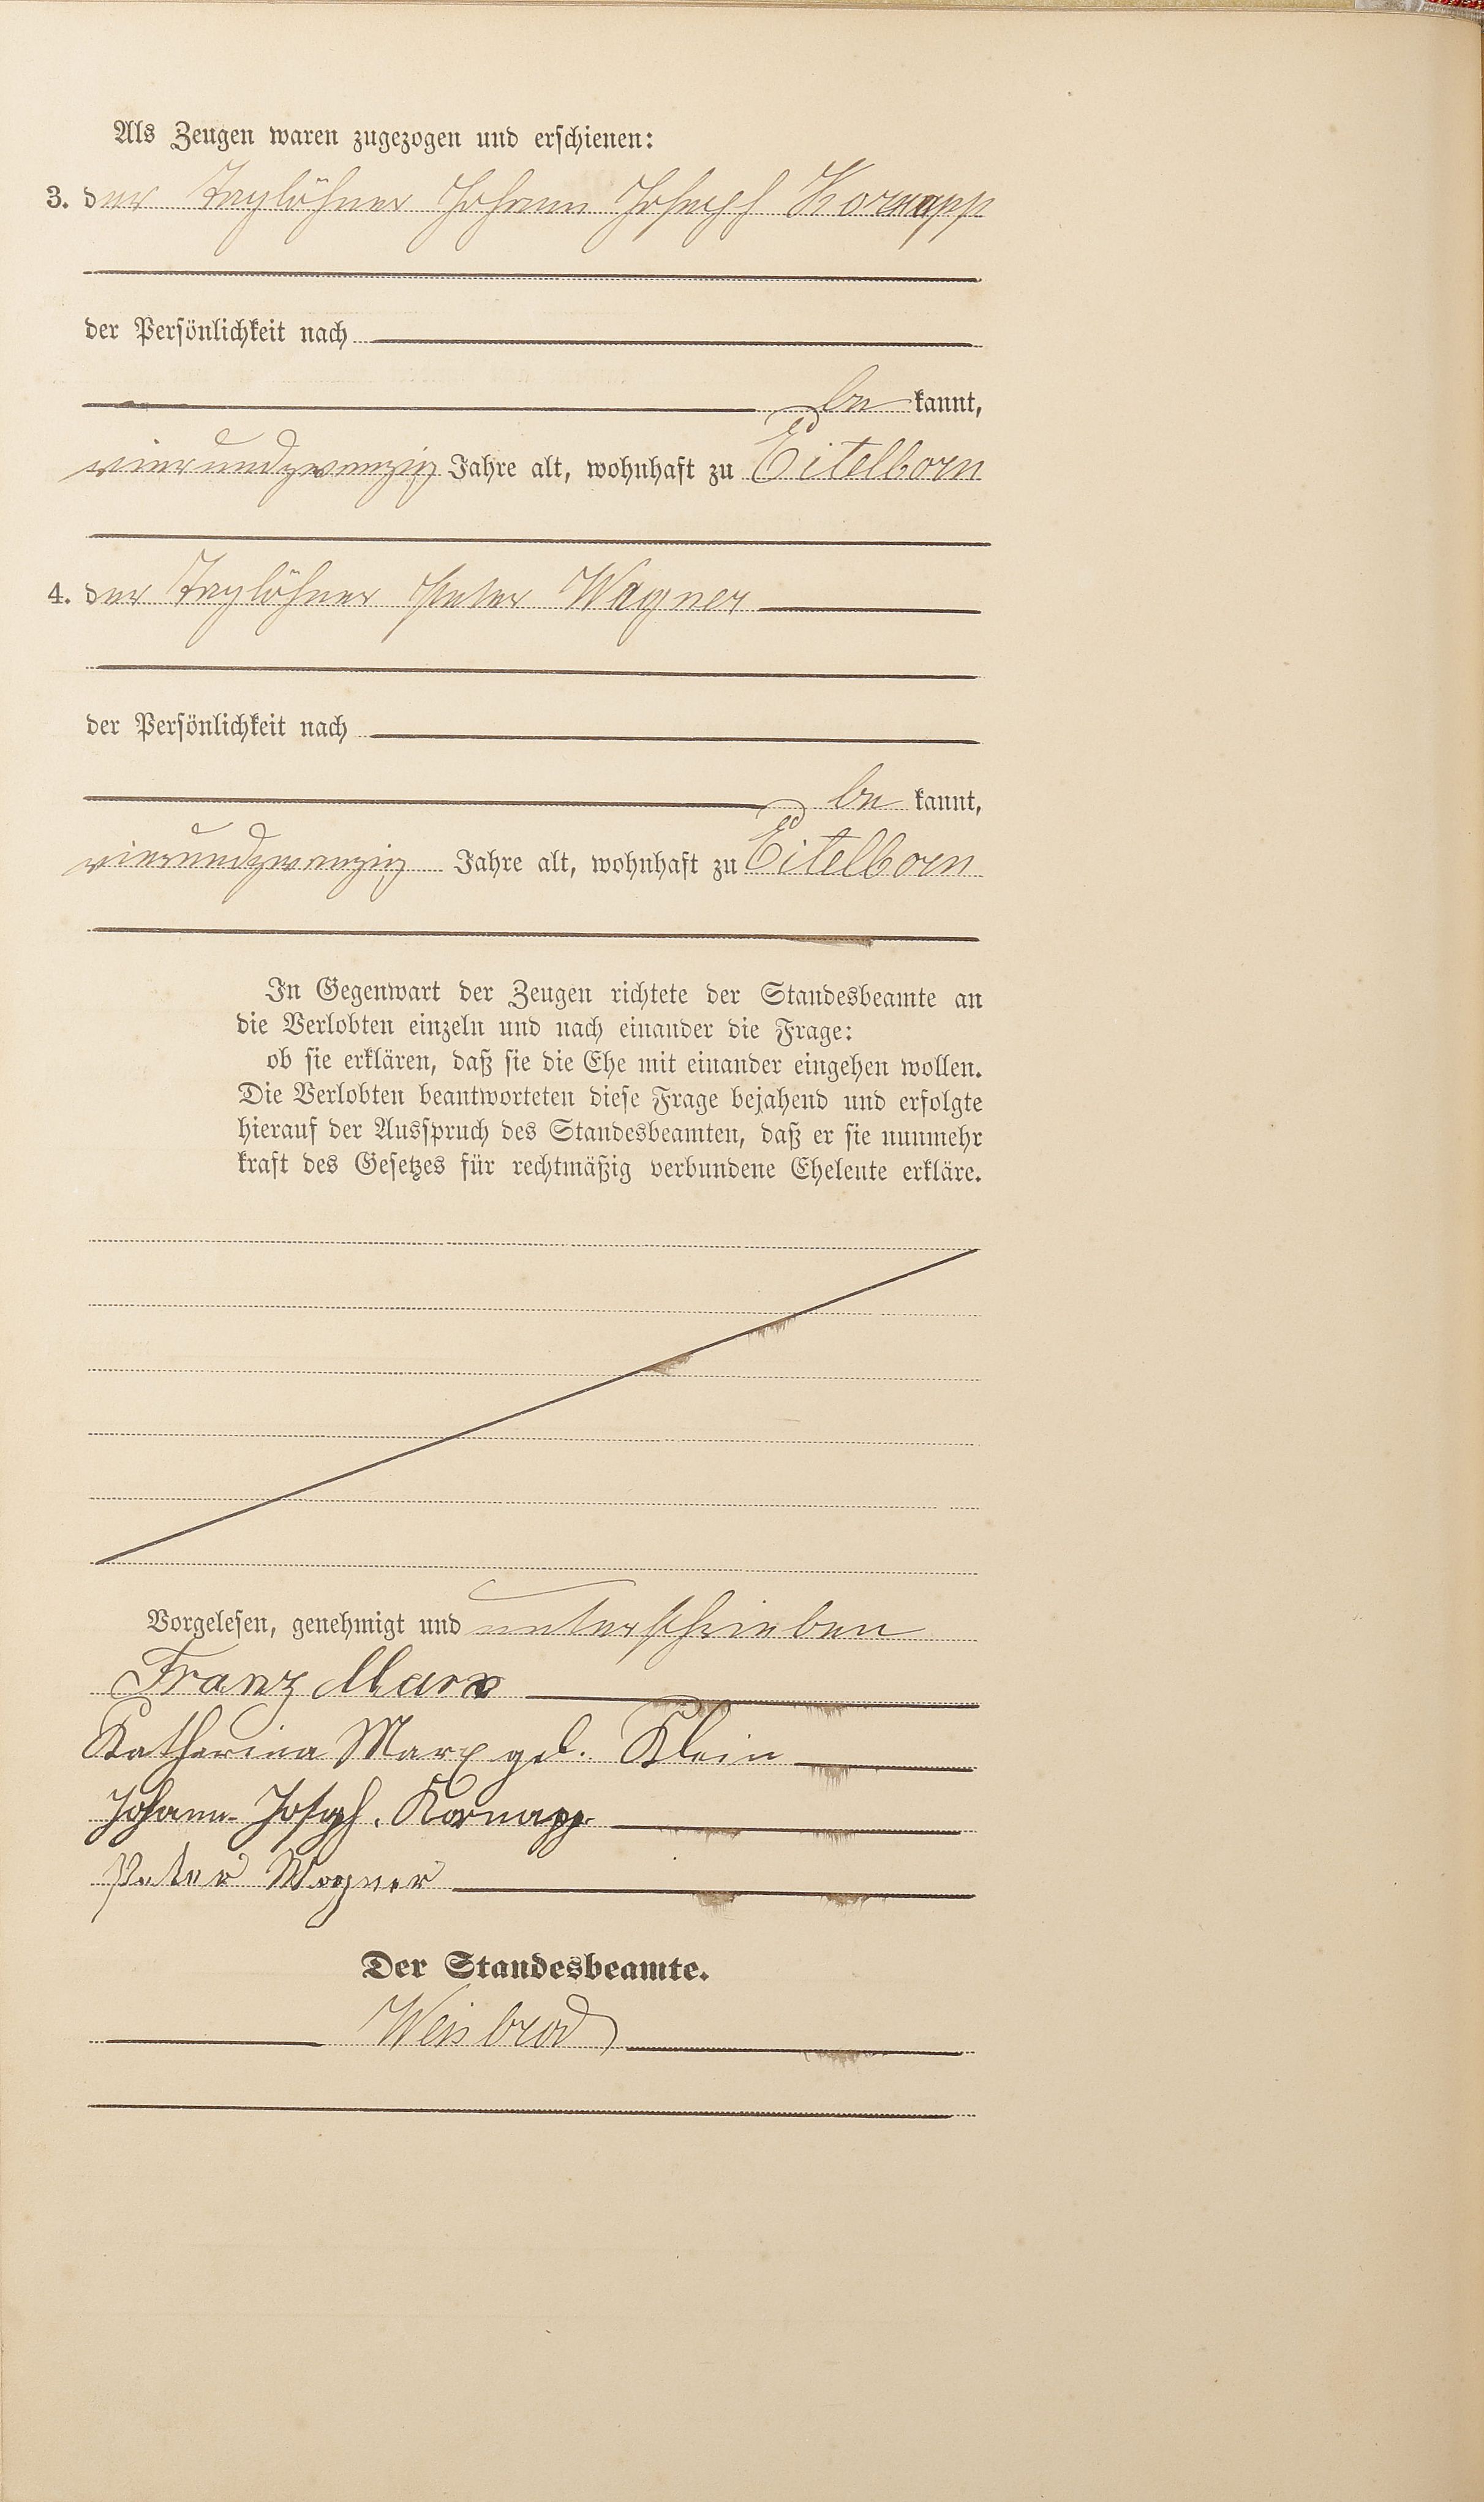 Als Zeugen waren zugezogen und erschienen:
3. der Taglöhner Johann Joseph Kornapp
der Persönlichkeit nach
be kannt,
vierundzwanzig Jahre alt, wohnhaft zu Eitelborn
4. der Taglöhner Peter Wagner
der Persönlichkeit nach
be kannt,
vierundzwanzig Jahre alt, wohnhaft zu Eitelborn
In Gegenwart der Zeugen richtete der Standesbeamte an
die Verlobten einzeln und nach einander die Frage:
ob sie erklären, daß sie die Ehe mit einander eingehen wollen.
Die Verlobten beantworteten diese Frage bejahend und erfolgte
hierauf der Ausspruch des Standesbeamten, daß er sie nunmehr
kraft des Gesetzes für rechtmäßig verbundene Eheleute erkläre.
Vorgelesen, genehmigt und unterschrieben
Franz Marx
Katherina Marx geb. Klein
Johann Joseph. Kornapp.
Peter Wagner
Der Standesbeamte.
Weisbrod